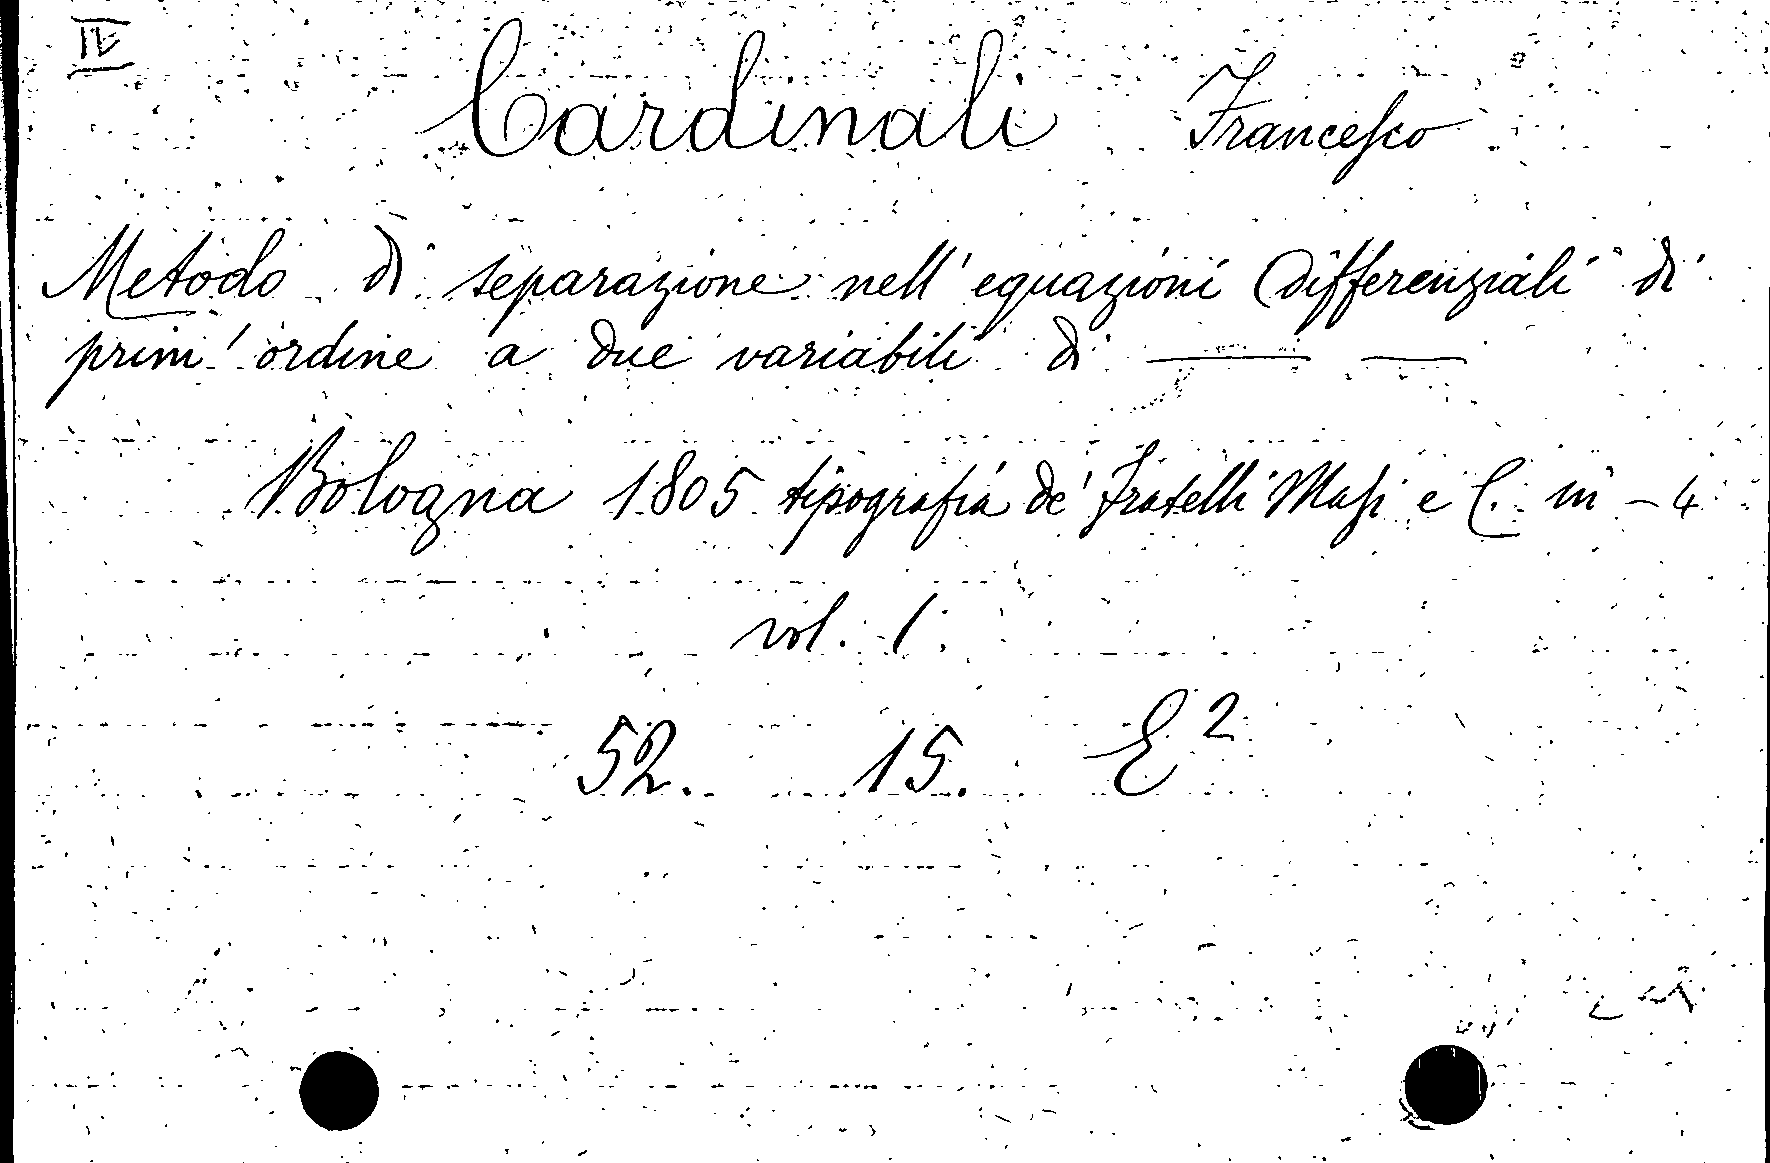 IV
Cardinali Francesco
Metodo di separazione nell' equazioni differenziali di
prim' ordine a due variabili di —— ——
Bologna 1805 tipografia de' Fratelli Masi e C. in - 4
vol. 1.
52. 15. E²